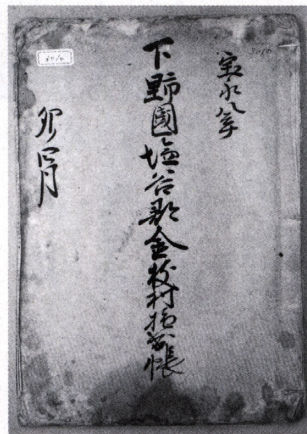 宝永八年
下野國塩谷郡金枝村指出帳
卯四月